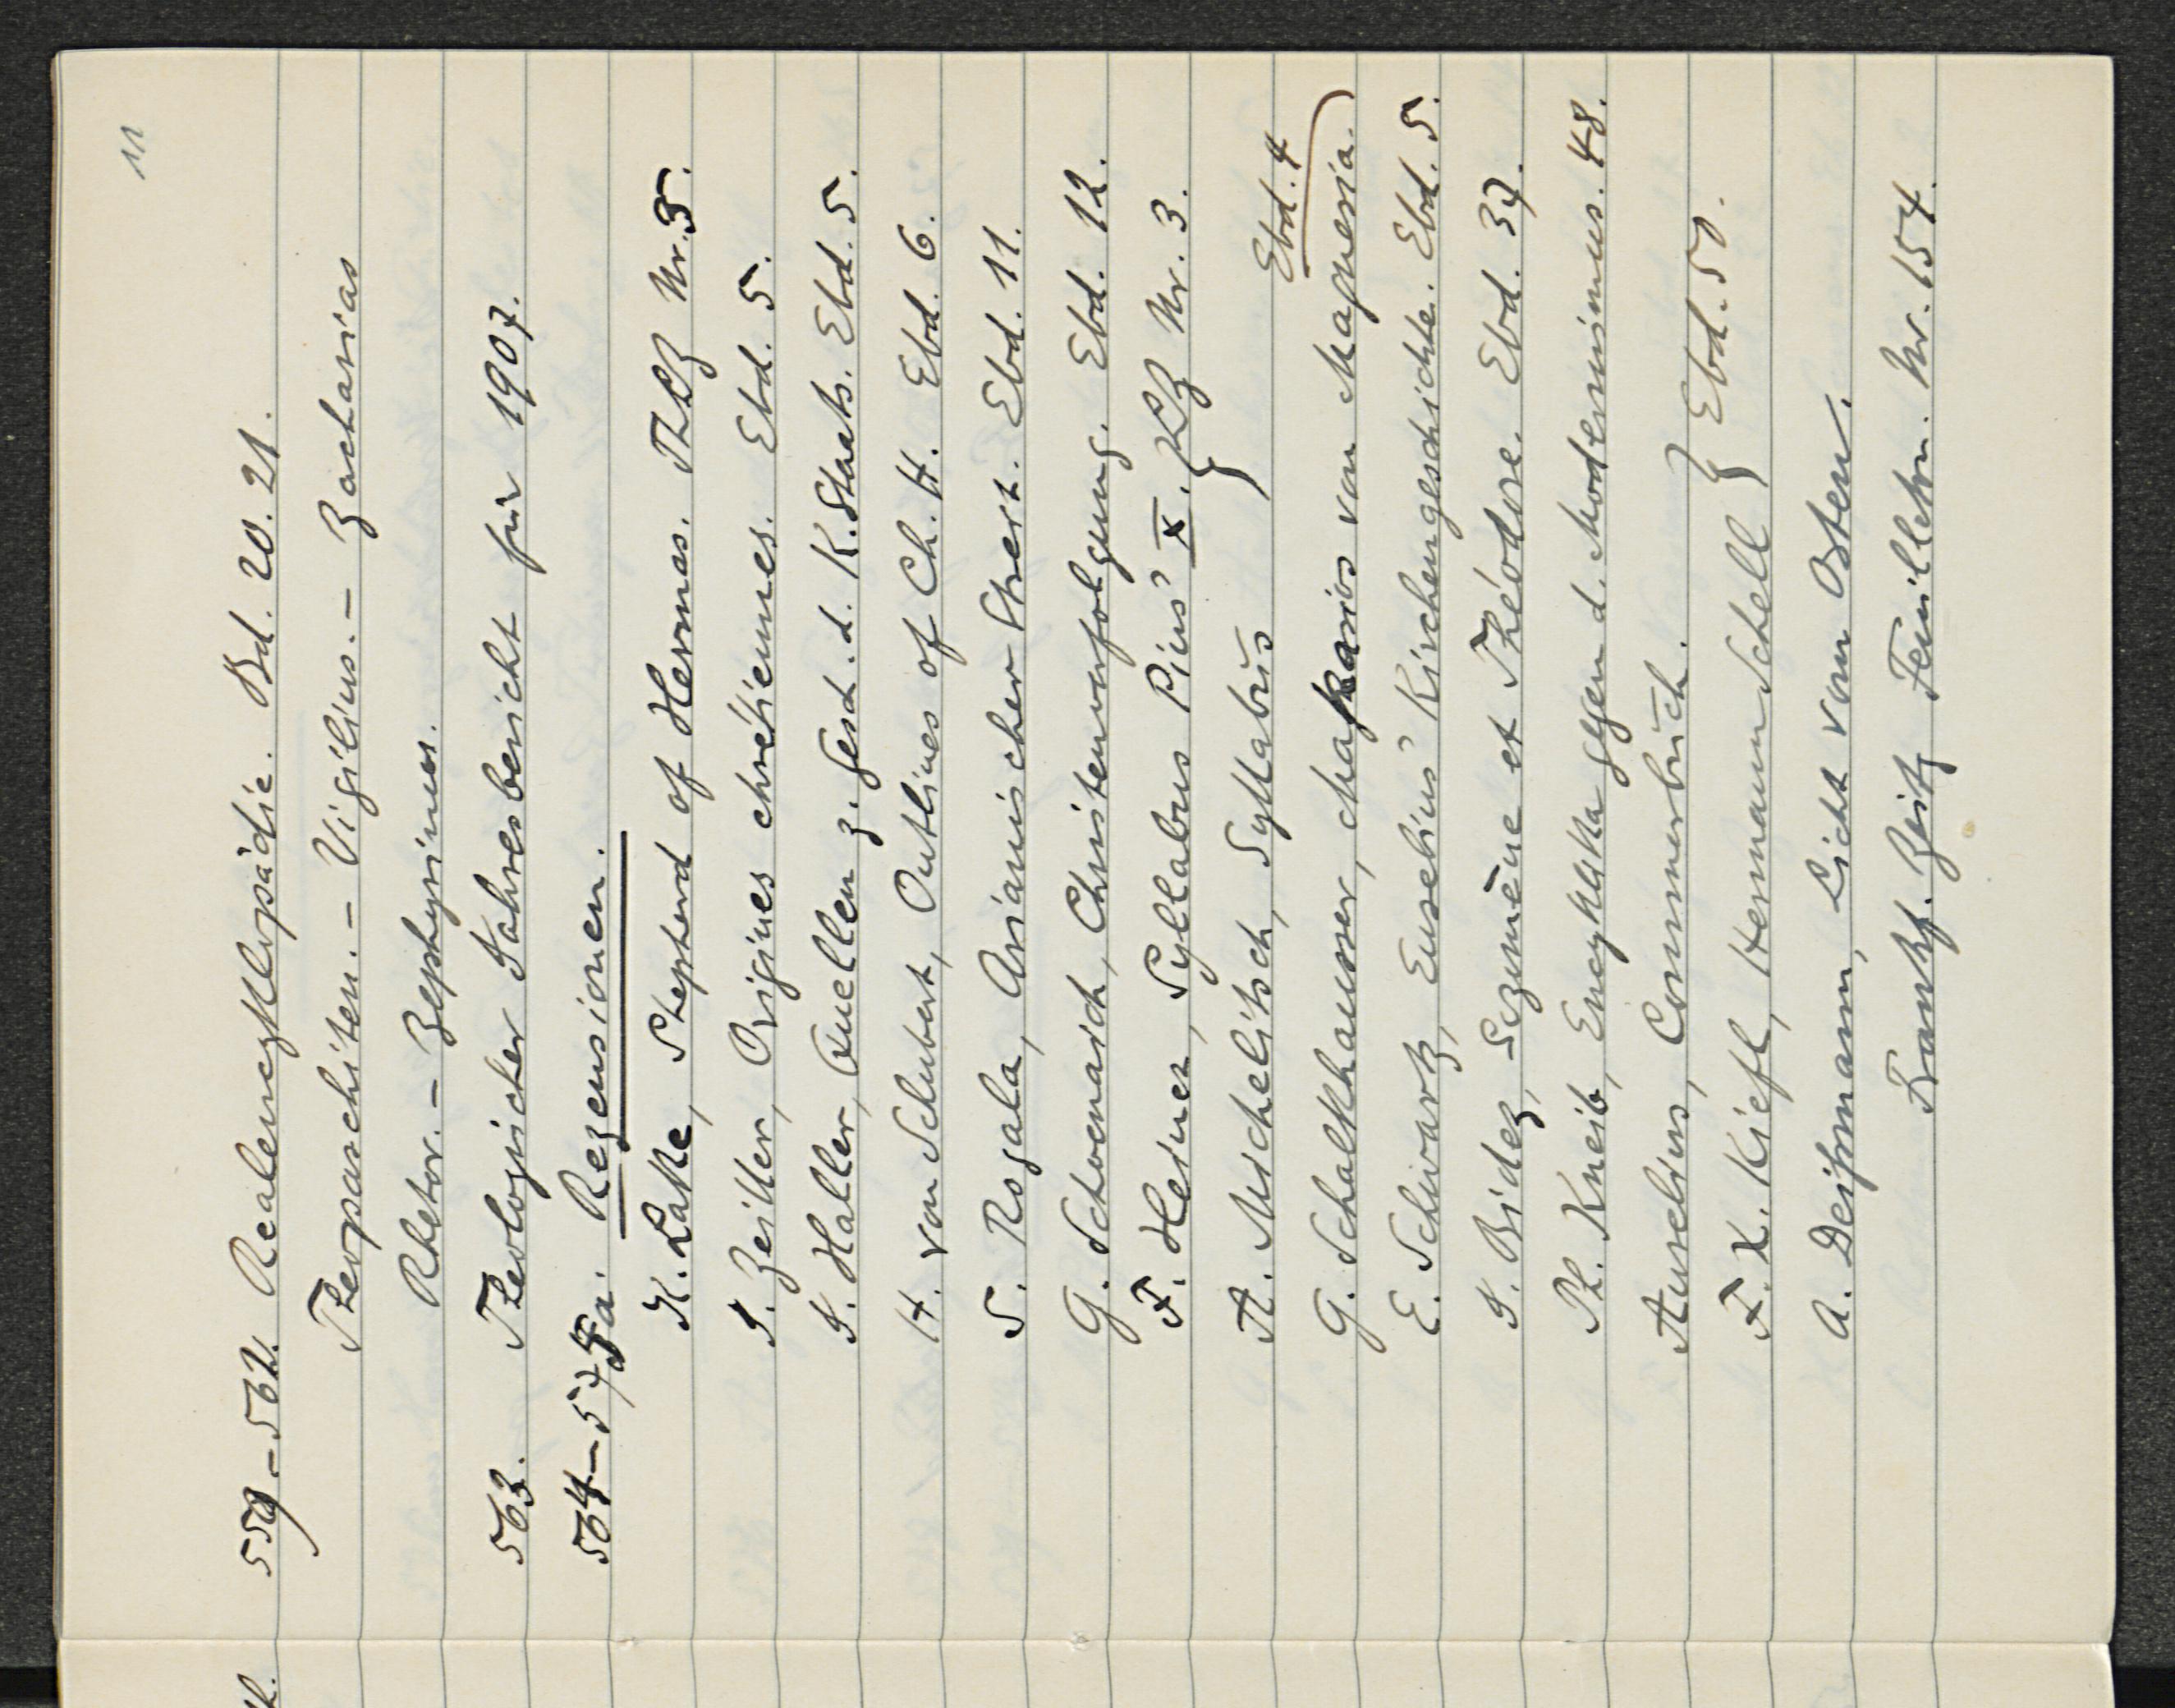 11
559-562. Realenzyklopädie. Bd. 20. 21.
Theopaschiten. - Vigilius. - Zacharias
Rhetor. - Zephyrinus.
563. Theologischer Jahresbericht für 1907.
564-575a. Rezensionen.
K. Lake, Shepherd of Hermas. ThLZ Nr. 5.
J. Zeiller, Origines chrétiennes. Ebd. 5.
J. Haller, Quellen z. Gesch. d. K. Staats. Ebd. 5.
H. von Schubert, Outlines of Ch. H. Ebd. 6.
S. Rogala, Arianischer Streit. Ebd. 11.
G. Schoenaich, Christenverfolgung. Ebd. 12.
F. Heiner, Syllabus Pius' X. } LZ Nr. 3.
A. Michelitsch, Syllabus } Ebd. 4
G. Schalkhausser, Makarios von Magnesia.
E. Schwartz, Eusebius' Kirchengeschichte. Ebd. 5.
J. Bidez, Sozomène et Théodore. Ebd. 37.
Ph. Kneib, Enzyklika gegen d. Modernismus. 48.
Aurelius, Commerbuch. }
F. X. Kiefl, Hermann Schell } Ebd. 50.
A. Deißmann, Licht vom Osten.
Frankf. Zeitg Feuilleton. Nr. 154.